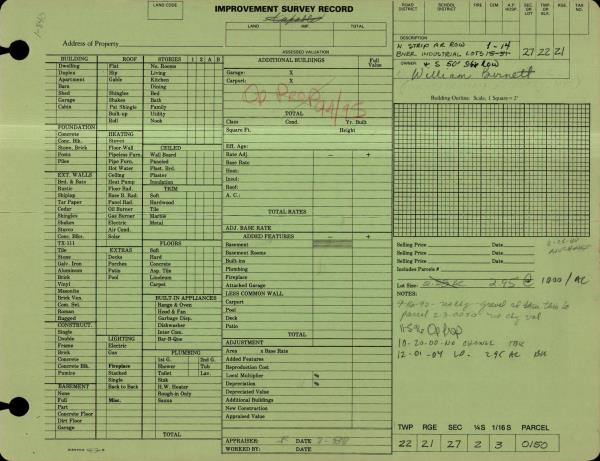 IMPROVEMENT SURVEY RECORD
LAND CODE
LAND
IMP.
TOTAL
ROAD DISTRICT
SCHOOL DISTRICT
FIRE
CEM
A.P. HOSP.
SEC OR LOT
TWP OR BLK.
RGE
TAX NO.
Address of Property
DESCRIPTION
N STRIP AR ROW 1-14
INDUSTRIAL LOTS 15-31
27 22 21
OWNER + S 50' ROW
William Barnett
ASSESSED VALUATION
BUILDING ROOF STORIES 1 2 A B
Dwelling Flat No. Rooms
Duplex Hip Living
Apartment Gable Kitchen
Barn Dining
Shed Shingles Bed
Garage Shakes Bath
Cabin Pat Shingle Family
Built-up Utility
Roll Nook
FOUNDATION
Concrete HEATING
Conc. Blk. Stoves CEILED
Stone, Brick Floor-Wall Wall Board
Posts Pipeless Furn. Paneled
Piles Pipe Furn. Plast. Brd.
Hot Water Plaster
EXT. WALLS Ceiling Insulation
Brd. & Bats Heat Pump TRIM
Rustic Floor Rad. Soft
Shiplap Base B. Rad. Hardwood
Tar Paper Panel Rad. Tile
Cedar Oil Burner Marble
Shingles Gas Burner Metal
Shakes Electric
Stucco Air Cond.
Conc. Blks. Solar FLOORS
TX-111 Soft
Tile EXTRAS Hard
Stone Decks Concrete
Galv. Iron Porches Asp. Tile
Aluminum Patio Linoleum
Brick Pool Carpet
Vinyl
Masonite
Brick Van. BUILT-IN APPLIANCES
Com. Sel. Range & Oven
Roman Hood & Fan
Ragged Garbage Disp.
CONSTRUCT. Dishwasher
Single Inter Com.
Double LIGHTING Bar-B-Que
Frame Electric
Brick Gas PLUMBING
Concrete 1st G. 2nd G.
Concrete Blk. Fireplace Shower Tub
Pumice Stacked Toilet Lav.
Single Sink
BASEMENT Back to Back H.W. Heater
Full Misc. Rough-in Only
Part Sauna
Concrete Floor
Dirt Floor
Garage
TOTAL
ADDITIONAL BUILDINGS Full Value
Garage: X
Carport: X
Op Prop 94/95
TOTAL
Class Cond. Yr. Built
Square Ft. Height
Eff. Age:
Rate Adj. − +
Base Rate
Heat:
Insul:
Roof:
A. C.:
TOTAL RATES
ADJ. BASE RATE
ADDED FEATURES − +
Basement
Basement Rooms
Built-ins
Plumbing
Fireplace
Attached Garage
LESS COMMON WALL
Carport
Pool
Deck
Patio
TOTAL
ADJUSTMENT
Area x Base Rate
Added Features
Reproduction Cost
Local Multiplier %
Depreciation %
Depreciated Value
Additional Buildings
New Construction
Appraised Value
APPRAISER: DATE
WORKED BY: DATE
Building Outline: Scale, 1 Square = 2'
Selling Price Date
Selling Price Date
Selling Price Date
Includes Parcels #
Lot Size: 2.95 @ 1000/AC
NOTES:
parcel 2-3-0050 no chg val
11-5-96 Op Prop
10-20-00 NO CHANGE
12-01-04 2.95 AC
TWP RGE SEC ¼S 1/16 S PARCEL
22 21 27 2 3 0150